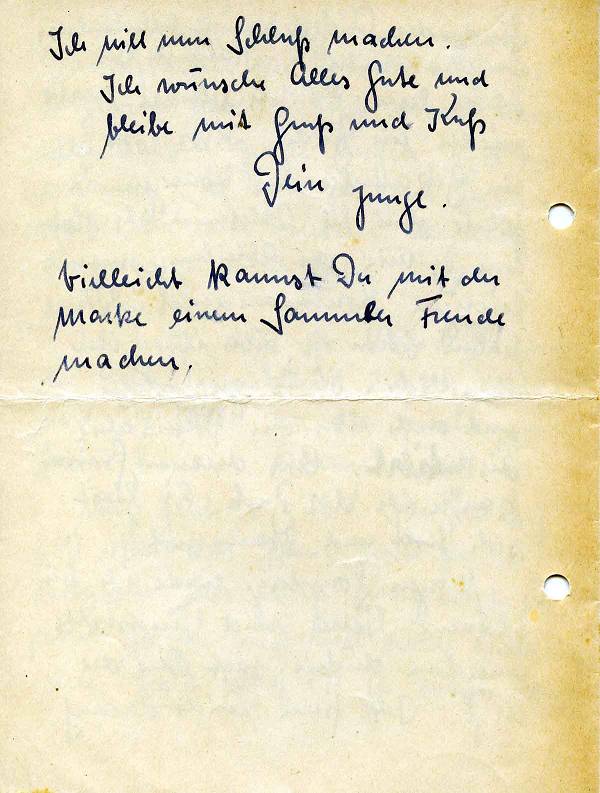 Ich will nun Schluß machen.
Ich wünsche Alles Gute und
bleibe mit Gruß und Kuß
Dein Junge.
Vielleicht kannst Du mit der
Marke einem Sammler Freude
machen.